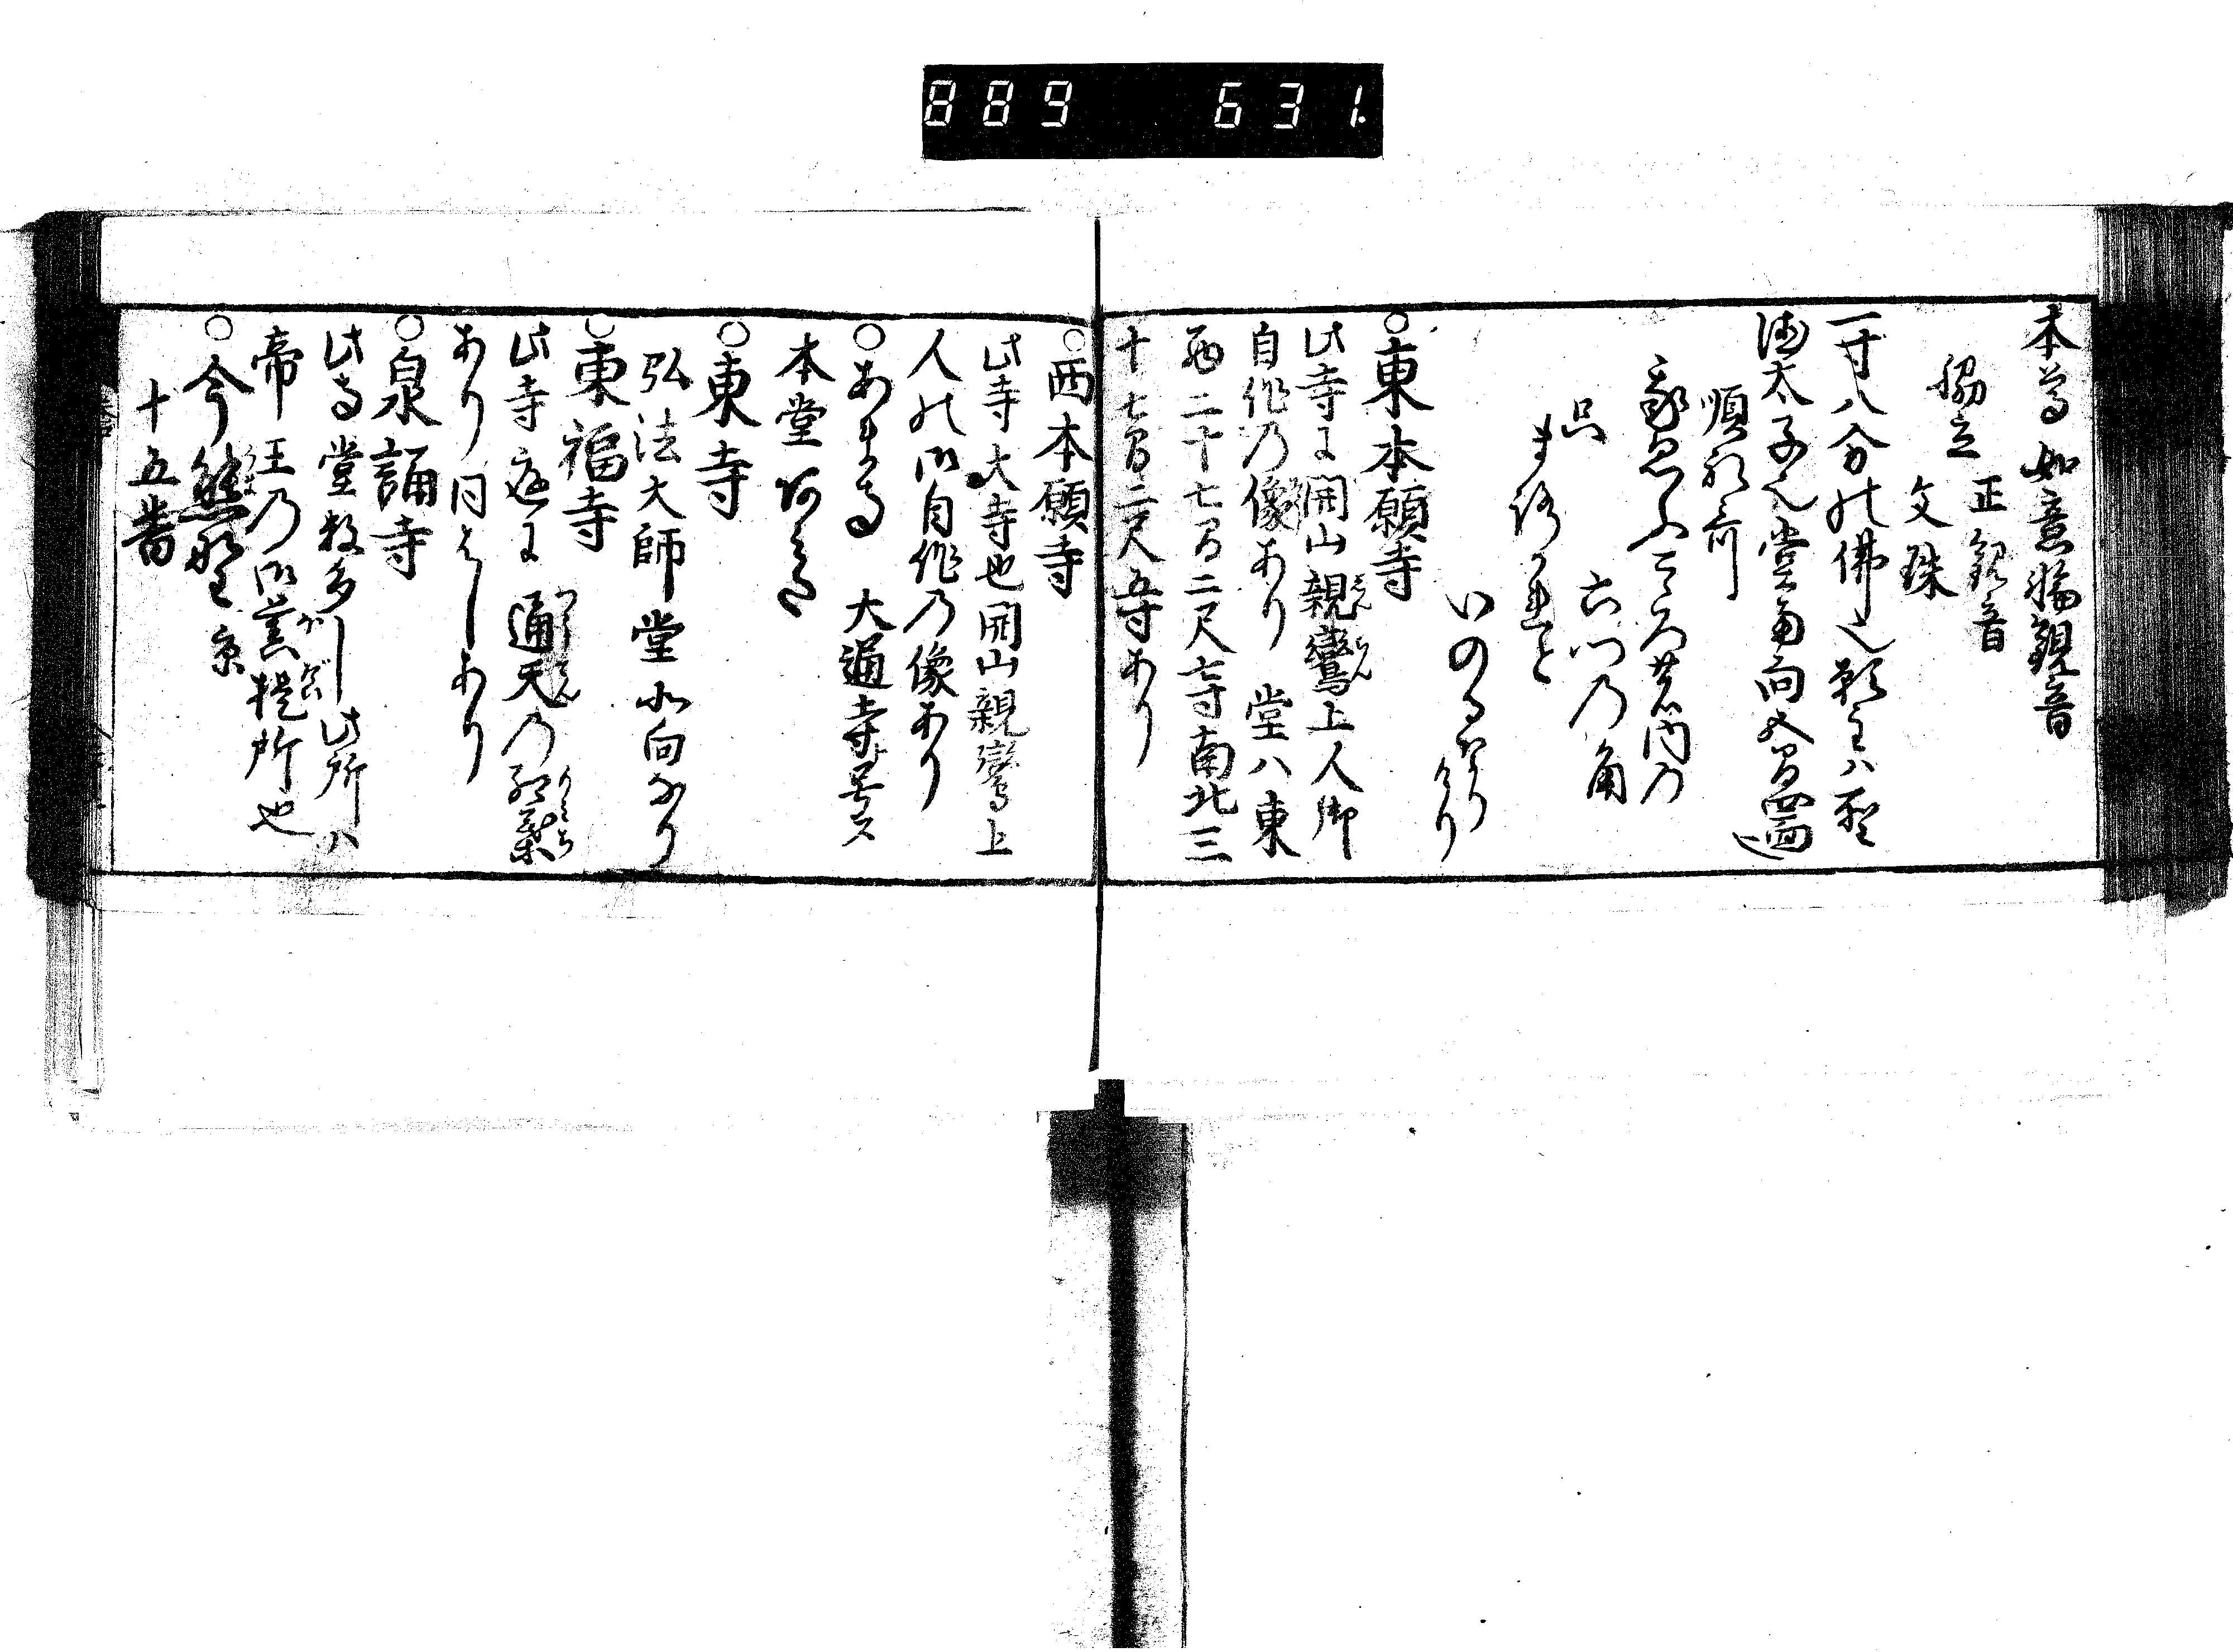 889 631.
本尊如意輪観音
脇立 正観音
文珠
一寸八分の佛也願主ハ聖
徳太子也堂南向五間四面
順礼哥
我思ふこゝろ
六つの角
只
まろかれと
いのるなりけり
○東本願寺
此寺に開山親鸞上人御
自作の像あり 堂ハ東
西二十七間二尺六寸南北三
十七間二尺五寸あり
○西本願寺
此寺大寺也開山親鸞上
人の御自作の像あり
大通寺号ス
本堂
○東寺
弘法大師堂 北向なり
○東福寺
此寺庭に通天の紅葉
あり同はしあり
○泉誦寺
此寺堂数多し此所ハ
帝王の御菩提所也
○今熊野 京
十五番